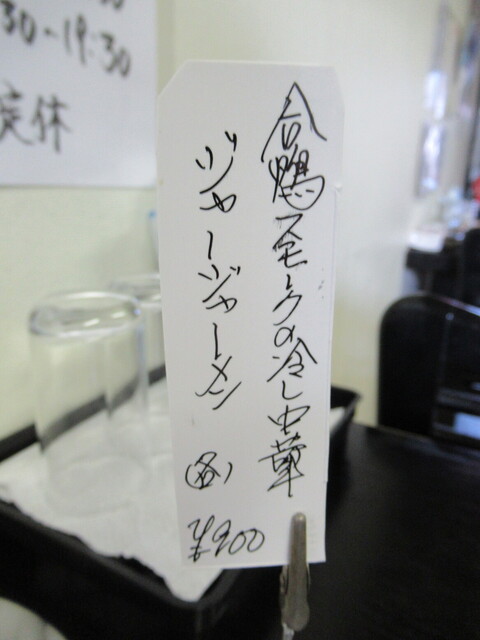 合鴨スモークの冷し中華
ジャージャーメン
(各)
¥900
30-19:30
定休